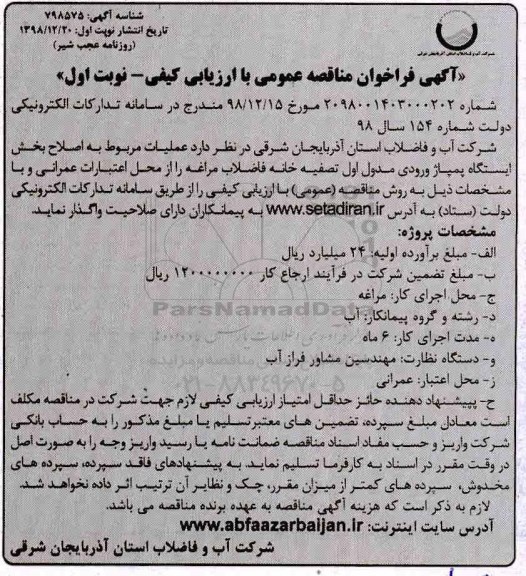 شناسه آگهی: ۷۹۸۵۷۵
تاریخ انتشار نوبت اول: ۱۳۹۸/۱۲/۲۰
(روزنامه عجب شیر)
شرکت آب و فاضلاب استان آذربایجان شرقی
«آگهی فراخوان مناقصه عمومی با ارزیابی کیفی- نوبت اول»
شماره ۲۰۹۸۰۰۱۴۰۳۰۰۰۲۰۲ مورخ ۹۸/۱۲/۱۵ مندرج در سامانه تدارکات الکترونیکی
دولت شماره ۱۵۴ سال ۹۸
شرکت آب و فاضلاب استان آذربایجان شرقی در نظر دارد عملیات مربوط به اصلاح بخش
ایستگاه پمپاژ ورودی مدول اول تصفیه خانه فاضلاب مراغه را از محل اعتبارات عمرانی و با
مشخصات ذیل به روش مناقصه (عمومی) با ارزیابی کیفی را از طریق سامانه تدارکات الکترونیکی
دولت (ستاد) به آدرس www.setadiran.ir به پیمانکاران دارای صلاحیت واگذار نماید.
مشخصات پروژه:
الف- مبلغ برآورده اولیه: ۲۴ میلیارد ریال
ب- مبلغ تضمین شرکت در فرآیند ارجاع کار ۱۲۰۰۰۰۰۰۰۰ ریال
ج- محل اجرای کار: مراغه
د- رشته و گروه پیمانکار: آب
ه- مدت اجرای کار: ۶ ماه
و- دستگاه نظارت: مهندسین مشاور فراز آب
ز- محل اعتبار: عمرانی
ح- پیپشنهاد دهنده حائز حداقل امتیاز ارزیابی کیفی لازم جهت شرکت در مناقصه مکلف
است معادل مبلغ سپرده، تضمین های معتبر تسلیم یا مبلغ مذکور را به حساب بانکی
شرکت واریز و حسب مفاد اسناد مناقصه ضمانت نامه یا رسید واریز وجه را به صورت اصل
در وقت مقرر در اسناد به کارفرما تسلیم نماید. به پیشنهادهای فاقد سپرده، سپرده های
مخدوش، سپرده های کمتر از میزان مقرر، چک و نظایر آن ترتیب اثر داده نخواهد شد.
لازم به ذکر است که هزینه آگهی مناقصه به عهده برنده مناقصه می باشد.
آدرس سایت اینترنت: www.abfaazarbaijan.ir
شرکت آب و فاضلاب استان آذربایجان شرقی
ParsNamadData
۰۲۱-۸۸۳۴۹۶۷۰-۵